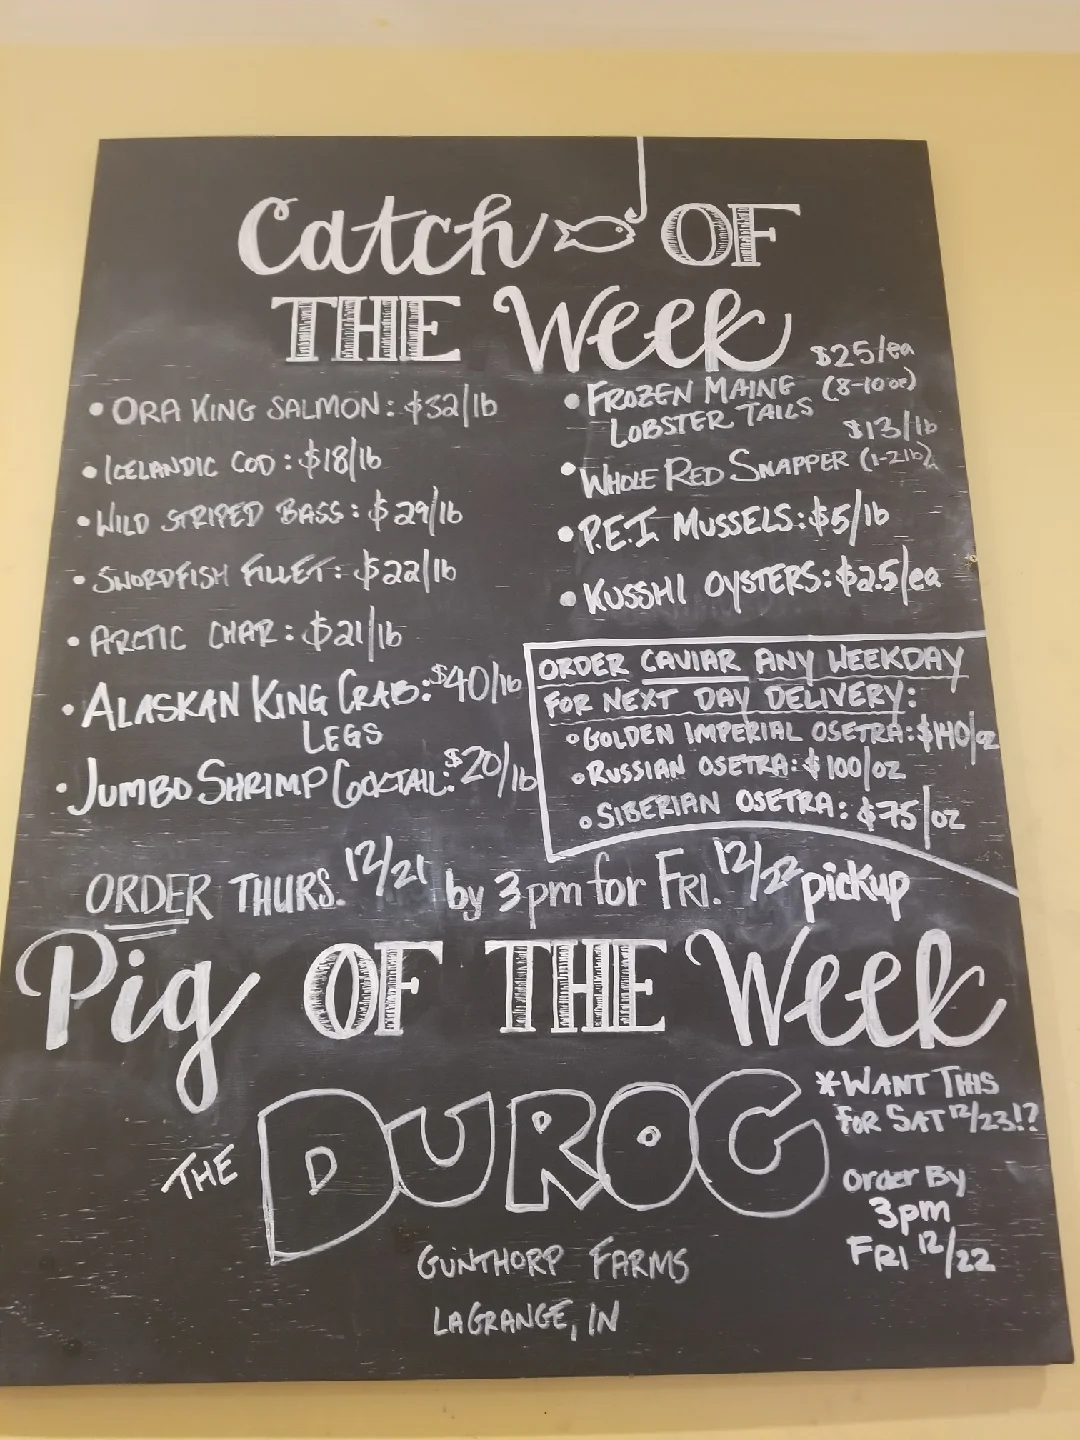 Catch OF
THE Week
• ORA KING SALMON: $32/lb
• ICELANDIC COD: $18/lb
• WILD STRIPED BASS: $29/lb
• SWORDFISH FILLET: $22/lb
• ARCTIC CHAR: $21/lb
• ALASKAN KING CRAB: $40/lb
LEGS
• JUMBO SHRIMP COCKTAIL: $20/lb
$25/ea
• FROZEN MAINE (8-10oz)
LOBSTER TAILS
$13/lb
• WHOLE RED SNAPPER (1-2lb)
• P.E.I. MUSSELS: $5/lb
• KUSSHI OYSTERS: $2.5/ea
ORDER CAVIAR ANY WEEKDAY
FOR NEXT DAY DELIVERY:
◦ GOLDEN IMPERIAL OSETRA: $140/oz
◦ RUSSIAN OSETRA: $100/oz
◦ SIBERIAN OSETRA: $75/oz
ORDER THURS. 12/21 by 3pm for FRI. 12/22 pickup
Pig OF THE Week
THE DUROC
GUNTHORP FARMS
LAGRANGE, IN
*WANT THIS
FOR SAT 12/23!?
Order By
3pm
FRI 12/22